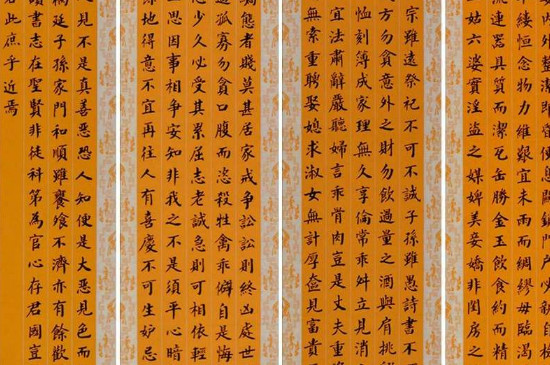 外整潔昏便息關
恒念物力維艱宜未雨而綢繆毋臨渴
流連器具質而潔瓦缶勝金玉飲食約而精
姑六婆實淫盜之媒婢美妾嬌非閨房之
宗雖遠祭祀不可不誠子孫雖愚詩書不
方勿貪意外之財勿飲過量之酒與肩挑
恤刻薄成家理無久享倫常乖舛立見消
宜法肅辭嚴聽婦言乖骨肉豈是丈夫重
無索重聘娶媳求淑女無計厚奩見富貴
驕態者賤莫甚居家戒爭訟訟則終凶處世
逞孤寡勿貪口腹而恣殺牲禽乖僻自是悔
少久必受其累屈志老誠急則可相依輕
思因事相爭安知非我之不是須平心暗
地得意不宜再往人有喜慶不可生妒忌
見不是真善惡恐人知便是大惡見色而
延子孫家門和順雖饔飧不濟亦有餘歡
讀書志在聖賢非徒科第為官心存君國豈
此庶乎近焉